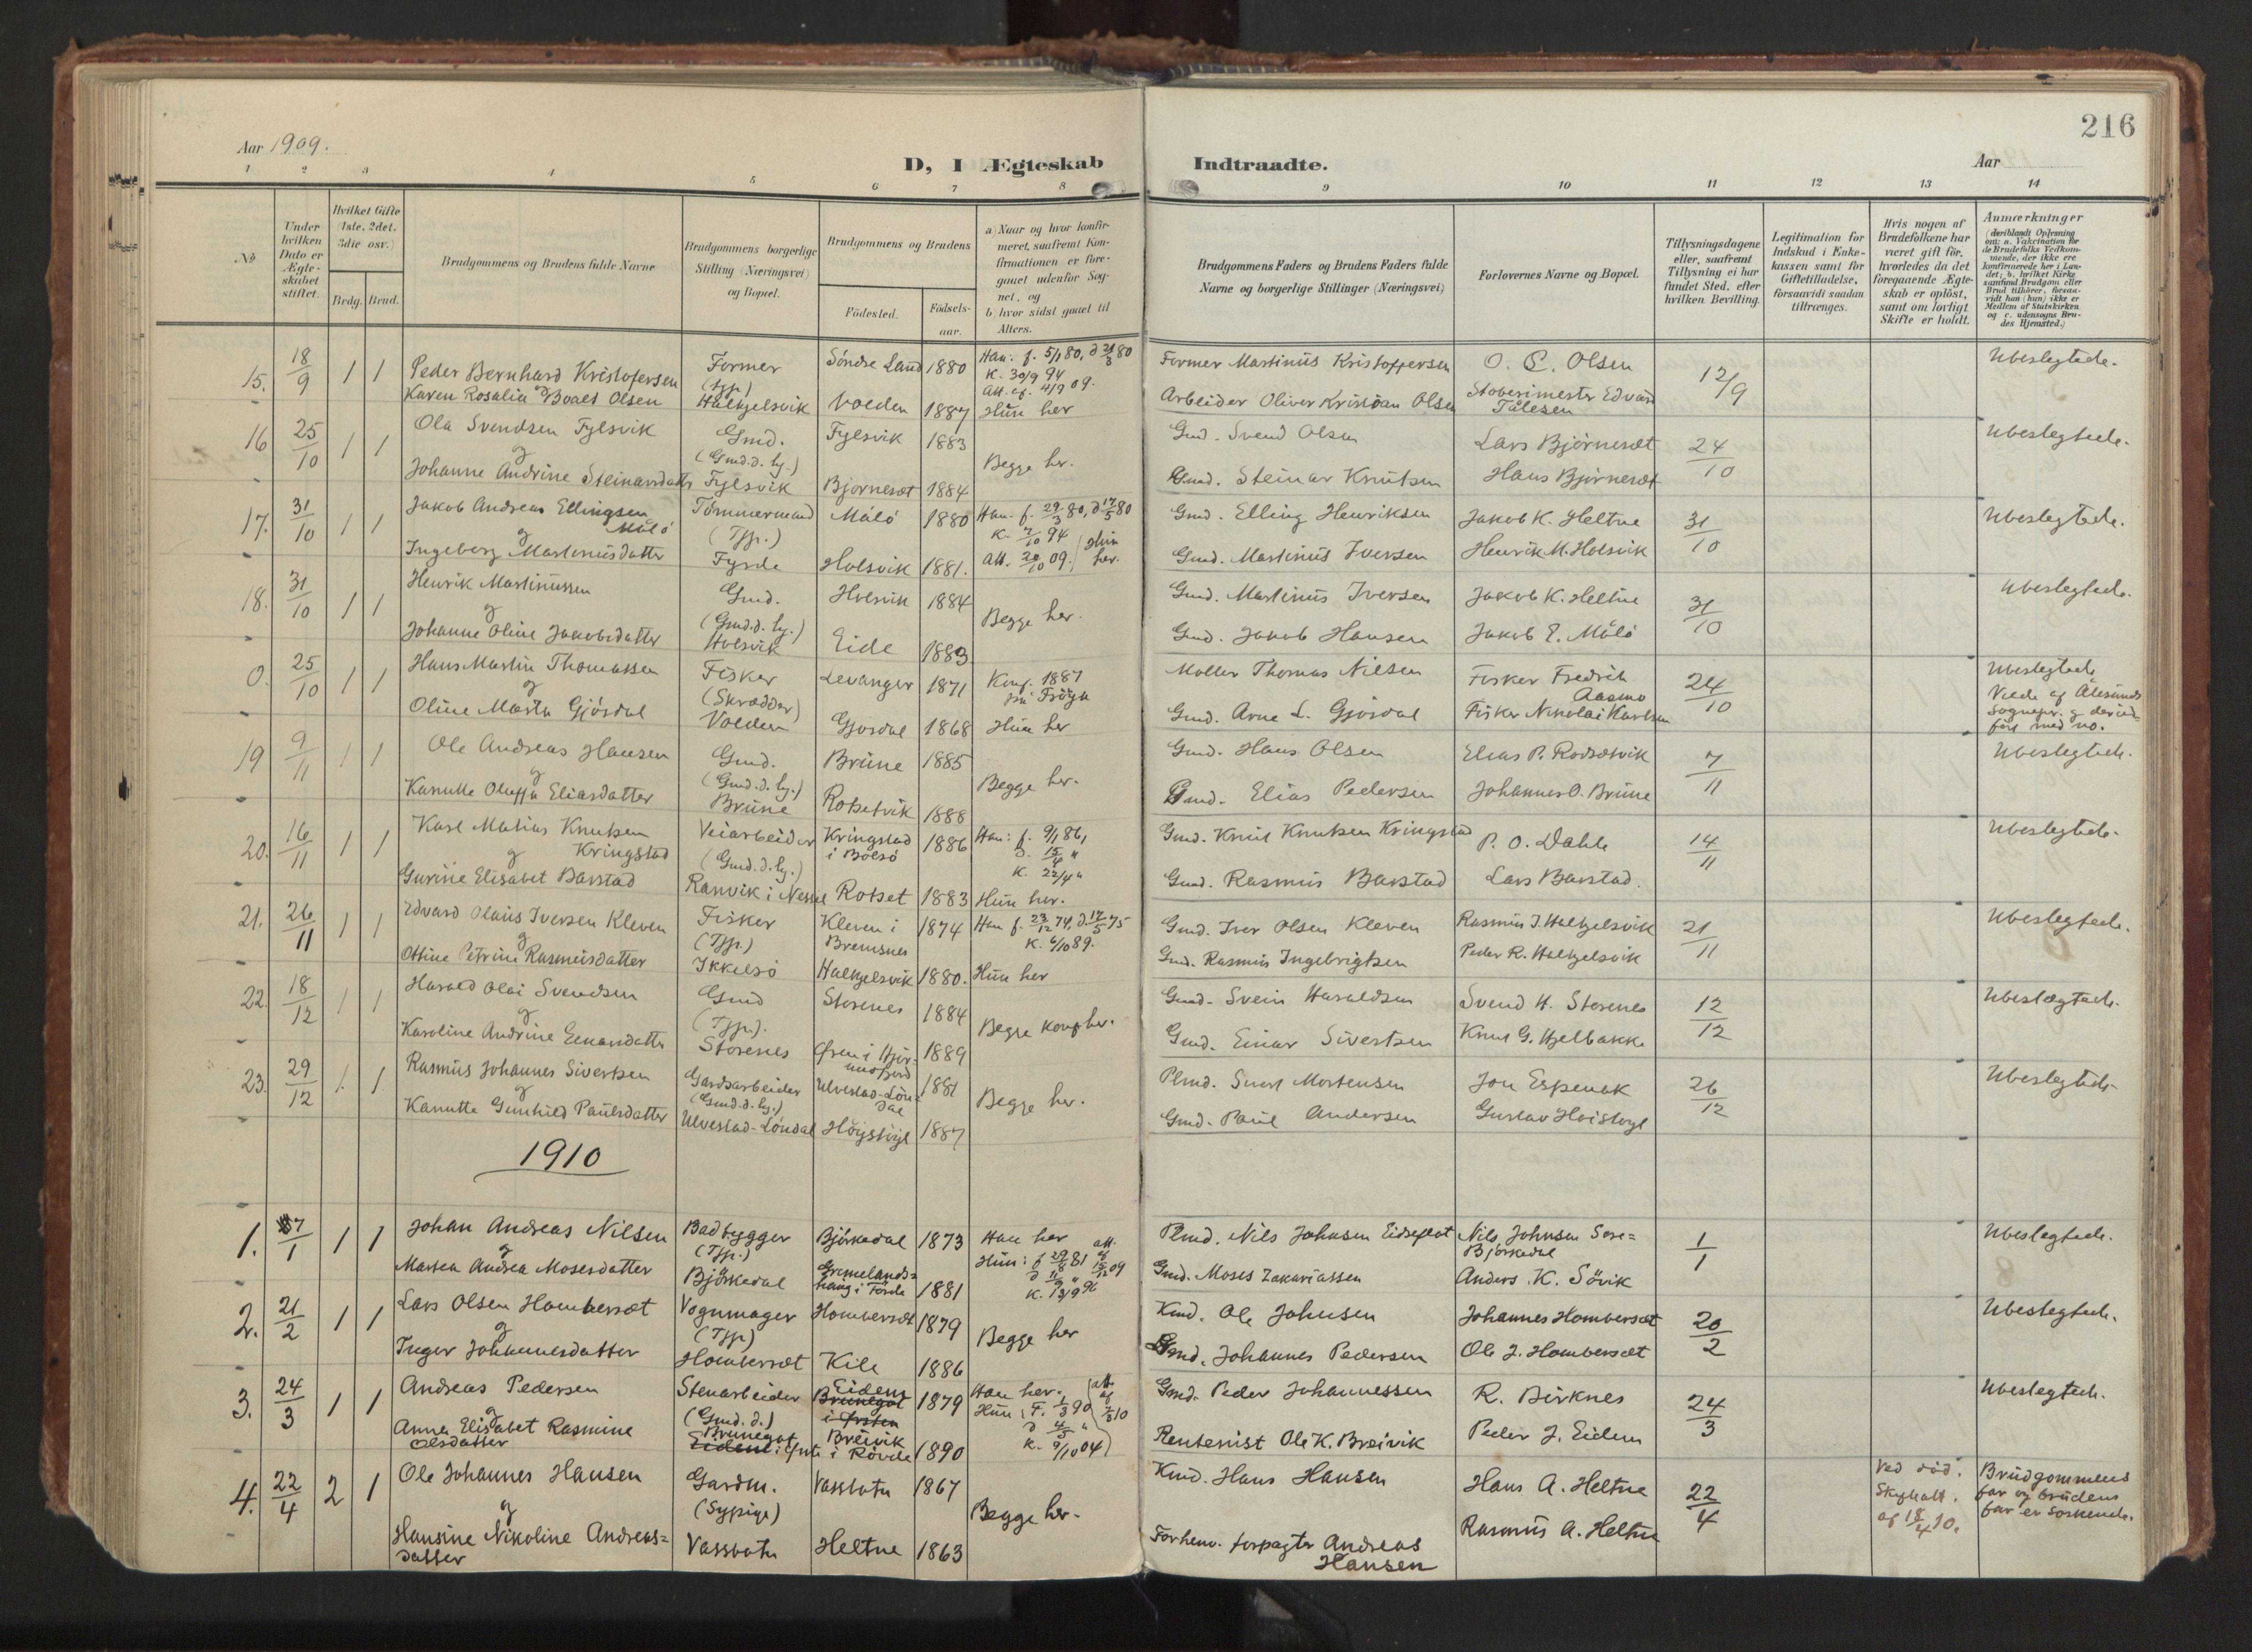 216
Aar 1909.
D, I Ægteskab Indtraadte.
Aar
1 2 3 4 5 6 7 8 9 10 11 12 13 14
No
Under hvilken Dato er Ægteskabet stiftet.
Hvilket Gifte (1ste, 2det, 3die osv.)
Brdg. Brud.
Brudgommens og Brudens fulde Navne
Brudgommens borgerlige Stilling (Næringsvei) og Bopæl.
Brudgommens og Brudens
Fødested.
Fødselsaar.
a) Naar og hvor konfirmeret, saafremt Konfirmationen er foregaaet udenfor Sognet, og
b) hvor sidst gaaet til Alters.
Brudgommens Faders og Brudens Faders fulde Navne og borgerlige Stillinger (Næringsvei)
Forlovernes Navne og Bopæl.
Tillysningsdagene eller, saafremt Tillysning ei har fundet Sted, efter hvilken Bevilling.
Legitimation for Indskud i Enkekassen samt for Giftetilladelse, forsaavidt saadan tiltrænges.
Hvis nogen af Brudefolkene har været gift før, hvorledes da det foregaaende Ægteskab er opløst, samt om lovligt Skifte er holdt.
Anmærkninger
(deriblandt Oplysning om: a. Vaksination for de Brudefolks Vedkommende, der ikke ere konfirmerede her i Landet; b. hvilket Kirkesamfund Brudgom eller Brud tilhører, forsaavidt han (hun) ikke er Medlem af Statskirken og c. udensogns Brudes Hjemsted.)
15. 18/9 1 1 Peder Bernhard Kristofersen Former Söndre Land 1880 Han: f. 5/1 80, d 29/3 80 Former Martinus Kristoffersen O. C. Olsen 12/9 Ubeslegtede.
(tjp.) K. 30/9 94
Karen Rosalia Boals Olsen Halkjelsvik Volden 1887 Att. af. 4/9 09. Hun her Arbeider Oliver Kristian Olsen Støberimester Edvard Tålesen
16 25/10 1 1 Ola Svendsen Fylsvik Gmd. Fylsvik 1883 Begge her. Gmd. Svend Olsen Lars Bjørneset 24/10 Ubeslegtede.
og (Gmd.d. hj.)
Johanne Andrine Steinarsdatter Fylsvik Bjorneset 1884 Gmd. Steinar Knutsen Hans Bjørneset
17. 31/10 1 1 Jakob Andreas Ellingsen Måló Tömmermand Måló 1880 Han. f. 29/3 80, d 17/5 80 Gmd. Elling Henriksen Jakob K. Heltne 31/10 Ubeslegtede.
og (Tjp.) K. 7/10 94
Ingeborg Martinusdatter Fyrde Holsvik 1881. Att. 20/10 09. Hun her. Gmd. Martinus Iversen Henrik M. Holsvik
18. 31/10 1 1 Henrik Martinussen Gmd. Holsvik 1884 Begge her. Gmd. Martinus Iversen Jakob K. Heltne 31/10 Ubeslegtede.
og (Gmd.d. hj.)
Johanne Oline Jakobsdatter Holsvik Eide 1883 Gmd. Jakob Hansen Jakob E. Måló
0. 25/10 1 1 Hans Martin Thomassen Fisker Levanger 1871 Konf. 1887 på Fröya Møller Thomas Nilsen Fisker Fredrik Aasmo 24/10 Ubeslegtede
og (Skrædder) Viede af Ålesunds
Oline Marta Gjösdal Volden Gjosdal 1868 Hun her Gmd. Arne L. Gjösdal Fisker Nikolai Karlsen Sognepr. og der indfört med no.
19 9/11 1 1 Ole Andreas Hansen Gmd. Brüne 1885 Begge her. Gmd. Hans Olsen Elias P. Rodsetvik 7/11 Ubeslegtede.
og (Gmd.d. hj.)
Kanutte Oluffa Eliasdatter Brüne Rotsetvik 1888 Gmd. Elias Pedersen Johannes O. Brüne
20. 16/11 1 1 Karl Matias Knutsen Kringstad Veiarbeider Kringstad i Bolsö 1886 Han: f. 9/1 86, d. 15/4 " Gmd. Knut Knutsen Kringstad P. O. Dahle 14/11 Ubeslegtede.
og (Gmd.d. hj.) K. 22/4 "
Gurine Elisabet Barstad Ranvik i Nesset Rotset 1883 Hun her. Gmd. Rasmus Barstad Lars Barstad.
21. 26/11 1 1 Edvard Olaus Iversen Kleven Fisker Kleven i Bremsnes 1874 Han f. 23/12 74, d. 17/5 75 Gmd. Iver Olsen Kleven Rasmus I. Halkjelsvik 21/11 Ubeslegtede.
og (Tjp.) K. 6/10 89.
Ottine Petrine Rasmusdatter Ikkelsö Halkjelsvik 1880. Hun her Gmd. Rasmus Ingebrigtsen Peder R. Halkjelsvik
22. 18/12 1 1 Harald Olai Svendsen Gmd Storenes 1884 Begge konf her. Gmd. Svein Haraldsen Svend H. Storenes 12/12 Ubeslegtede.
og (Tjp.).
Karoline Andrine Einarsdatter Storenes Øren i Hjörundfjord 1889 Gmd. Einar Sivertsen Knut G. Hjelbakke
23. 29/12 1 1 Rasmus Johannes Sivertsen Gardsarbeider Ulvestad-Löndal 1881 Begge her. Plmd. Sivert Mortensen Jon Espenak 26/12 Ubeslegtede
og (Gmd.d. hj.)
Kanutte Gunhild Paulsdatter Ulvestad-Löndal Höjstöyl 1887 Gmd. Paul Andersen Gustav Hoistoyl
1910
1. 7/1 1 1 Johan Andreas Nilsen Badbygger Björkedal 1873 Han her Plmd. Nils Johnsen Eidseflot Nils Johnsen Sore= Bjorkedal 1/1 Ubeslegtede.
og (Tjp.) Hun: f 29/8 81 att. af 15/12 09
Martea Andrea Mosesdatter Björkedal Gremelands= haug i Förde 1881 d 11/9 " K. 13/9 96 Gmd. Moses Zakariassen Anders K. Sövik
2. 21/2 1 1 Lars Olsen Homberset Vognmager Homberset 1879 Begge her Kmd. Ole Johnsen Johannes Homberset 20/2 Ubeslegtede.
og (Tjp)
Inger Johannesdatter Homberset Kile 1886 Gmd. Johannes Pedersen Ole J. Homberset
3. 24/3 1 1 Andreas Pedersen Stenarbeider Eidem Brunegot i Ørsten 1879 Han her. Gmd. Peder Johannessen R. Birknes 24/3 Ubeslegtede.
og (Gmd. d.) Hun: F. 1/3 90 att. af 7/3 10
Anna Elisabet Rasmine Olsdatter Brunegot Eidem Breivik i Rövde 1890 d 4/5 " K. 9/10 04 Rentenist Ole K. Breivik Peder J. Eidem
4. 22/4 2 1 Ole Johannes Hansen Gardm. Vassbotn 1867 Begge her. Kmd. Hans Hansen Hans A. Heltne 22/4 Ved död. Skifteatt. af 18/4 10. Brudgommens far og brudens far er söskende.
og (Sypige)
Hansine Nikoline Andreas= datter Vassbotn Heltne 1863 Forhenv. forpagter Andreas Hansen Rasmus A. Heltne